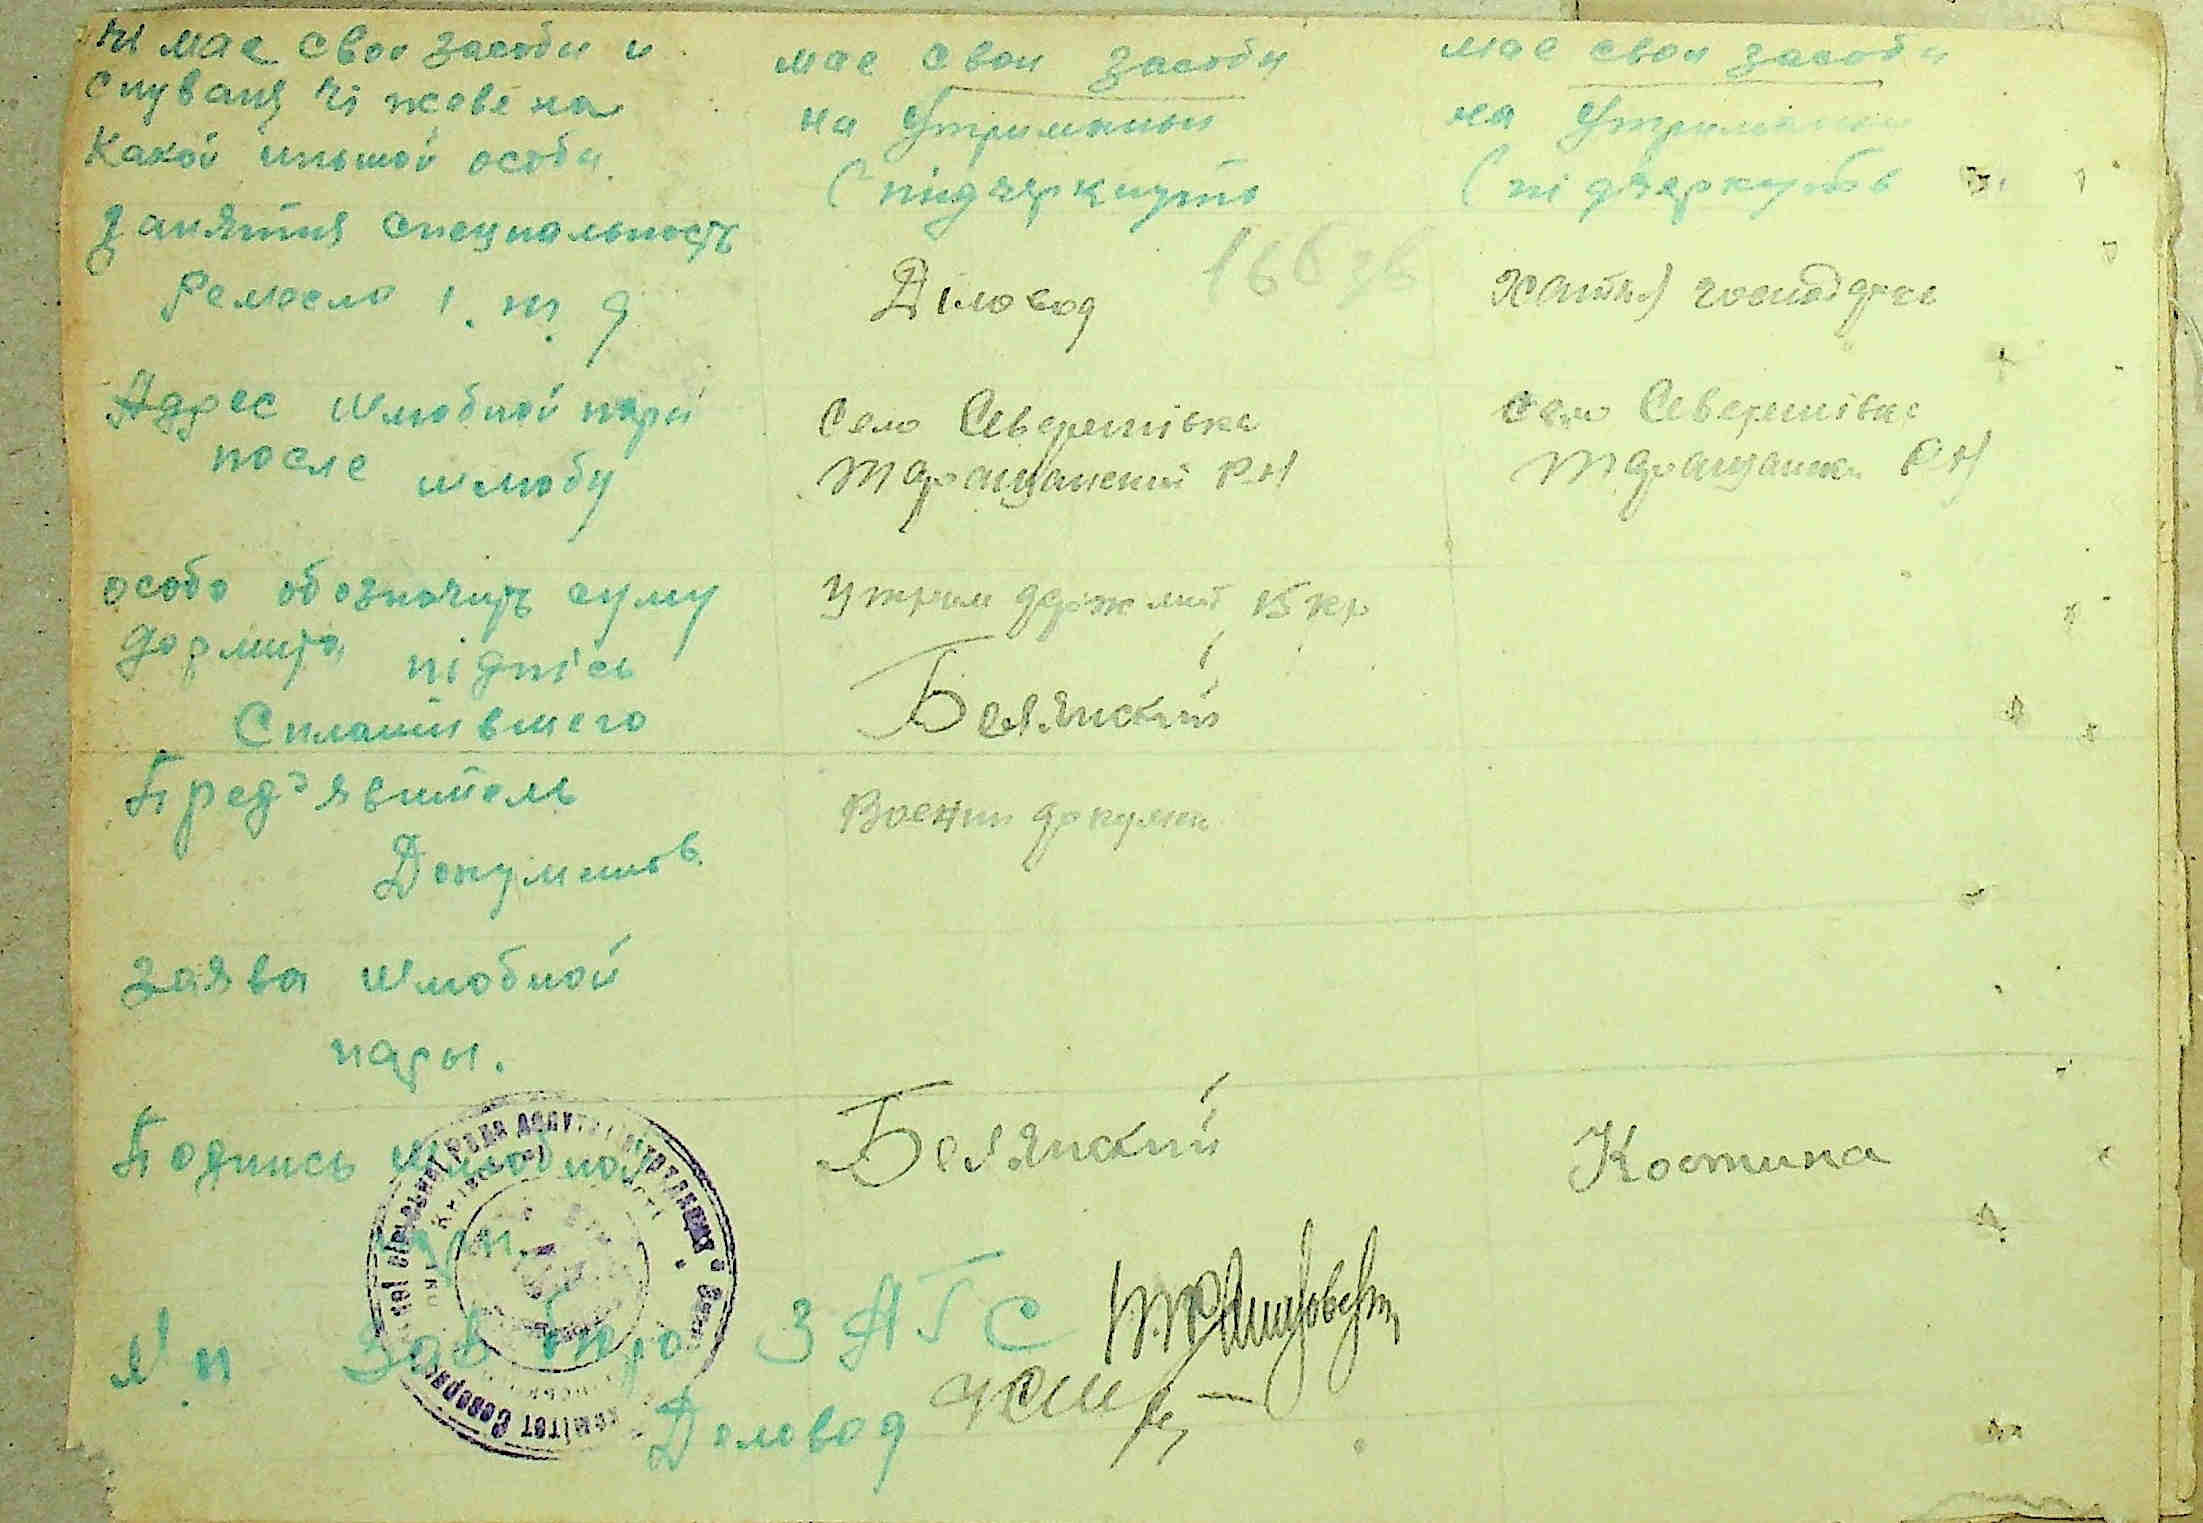 чі мае свои засоби и
снуваня чі жеве на
Какой иньшой особи.
мае свои засоби
на Утриманьи
(підчеркнуть
мае свои засоби
на Утриманьи
(підчеркнуть
Заняття специальность
Ремесло і. т. д
Діловод
Хатня господарк
Адрес шлюбной пари
после шлюбу
Село Северенівка
Таращанский Р-Н
село Северенівка
Таращанск Р-Н
особо обозначить суму
гормита підпісь
Сплатившего
15 кр
Белянский
Пред'явитель
Документов
Воений документ
Заява шлюбной
пары.
Подпись шлюбной
пари.
Белянский
Костина
М п Зав бюро ЗАГС
Деловод